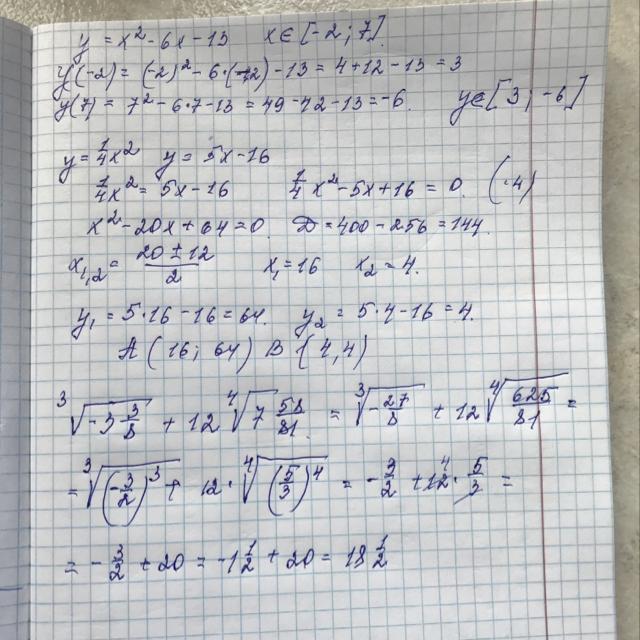 y = x² - 6x - 13    x ∈ [-2; 7].
y(-2) = (-2)² - 6·(-2) - 13 = 4 + 12 - 13 = 3
y(7) = 7² - 6·7 - 13 = 49 - 42 - 13 = -6.    y ∈ [3; -6]
y = 1/4 x²    y = 5x - 16
1/4 x² = 5x - 16    1/4 x² - 5x + 16 = 0.    (·4)
x² - 20x + 64 = 0.    D = 400 - 256 = 144.
x₁,₂ = (20 ± 12)/2    x₁ = 16    x₂ = 4.
y₁ = 5·16 - 16 = 64.    y₂ = 5·4 - 16 = 4.
A (16; 64)  B (4, 4)
∛(-3 3/8) + 12 ∜(7 58/81) = ∛(-27/8) + 12 ∜(625/81) =
= ∛((-3/2)³) + 12 · ∜((5/3)⁴) = -3/2 + 12 4 · 5/3 =
= -3/2 + 20 = -1 1/2 + 20 = 18 1/2